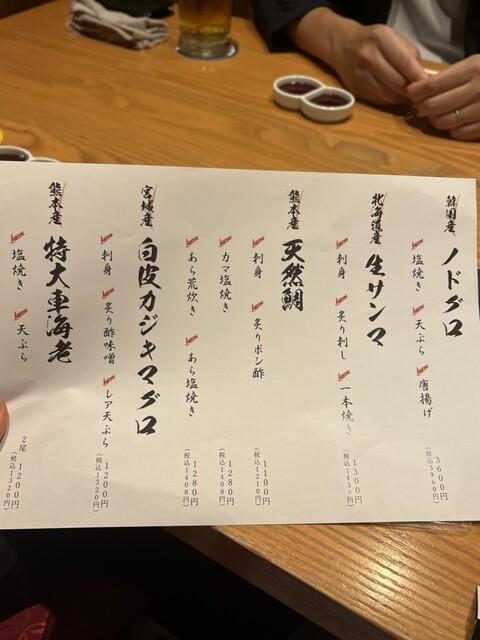 韓国産
ノドグロ
塩焼き 天ぷら 唐揚げ
3600円
(税込3960円)
北海道産
生サンマ
刺身 炙り刺し 一本焼き
1300円
(税込1430円)
熊本産
天然鯛
刺身 炙りポン酢
1100円
(税込1210円)
カマ塩焼き
1280円
(税込1408円)
あら荒炊き あら塩焼き
1280円
(税込1408円)
宮城産
白皮カジキマグロ
刺身 炙り酢味噌 レア天ぷら
1200円
(税込1320円)
熊本産
特大車海老
塩焼き 天ぷら
2尾 1200円
(税込1320円)